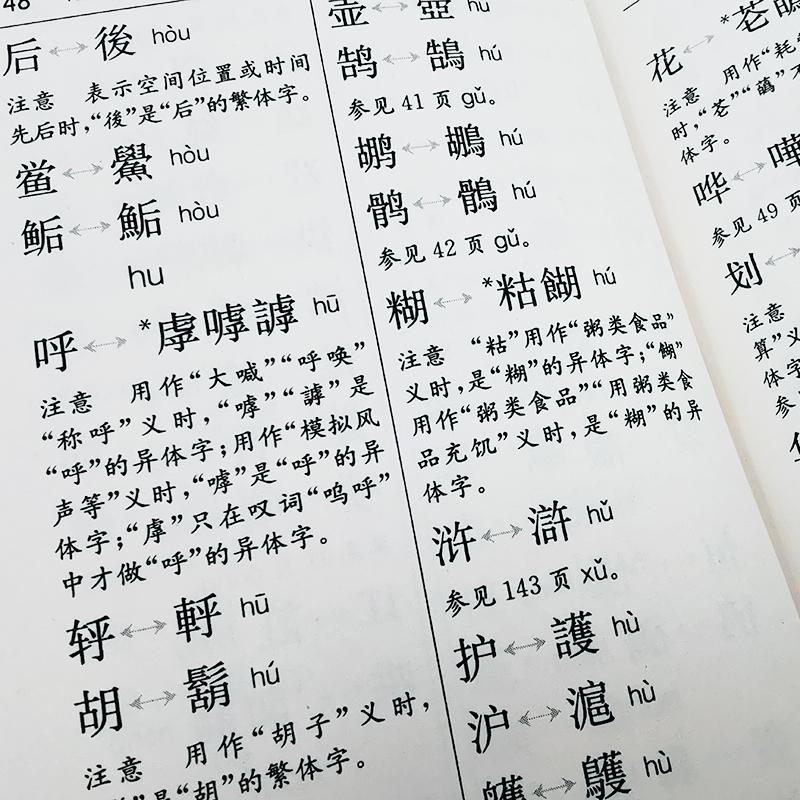 48
后↔後 hòu
注意 表示空间位置或时间
先后时，“後”是“后”的繁体字。
鲎↔鱟 hòu
鲘↔鮜 hòu
hu
呼↔*虖嘑謼 hū
注意 用作“大喊”“呼唤”
“称呼”义时，“嘑”“謼”是
“呼”的异体字；用作“模拟风
声等”义时，“嘑”是“呼”的异
体字；“虖”只在叹词“呜呼”
中才做“呼”的异体字。
轷↔軤 hū
胡↔鬍 hú
注意 用作“胡子”义时，
”是“胡”的繁体字。
壶↔壺 hú
鹄↔鵠 hú
参见 41 页 gǔ。
鹕↔鶘 hú
鹘↔鶻 hú
参见 42 页 gǔ。
糊↔*粘餬 hú
注意 “粘”用作“粥类食品”
义时，是“糊”的异体字；“餬”
用作“粥类食品”“用粥类食
品充饥”义时，是“糊”的异
体字。
浒↔滸 hǔ
参见 143 页 xǔ。
护↔護 hù
沪↔滬 hù
鳠↔鱯 hù
花↔*苍蘤
注意 用作“耗
时，“苍”“蘤”不
体字。
哗↔嘩
参见 49 页
划↔
注意
算”义
体字
参